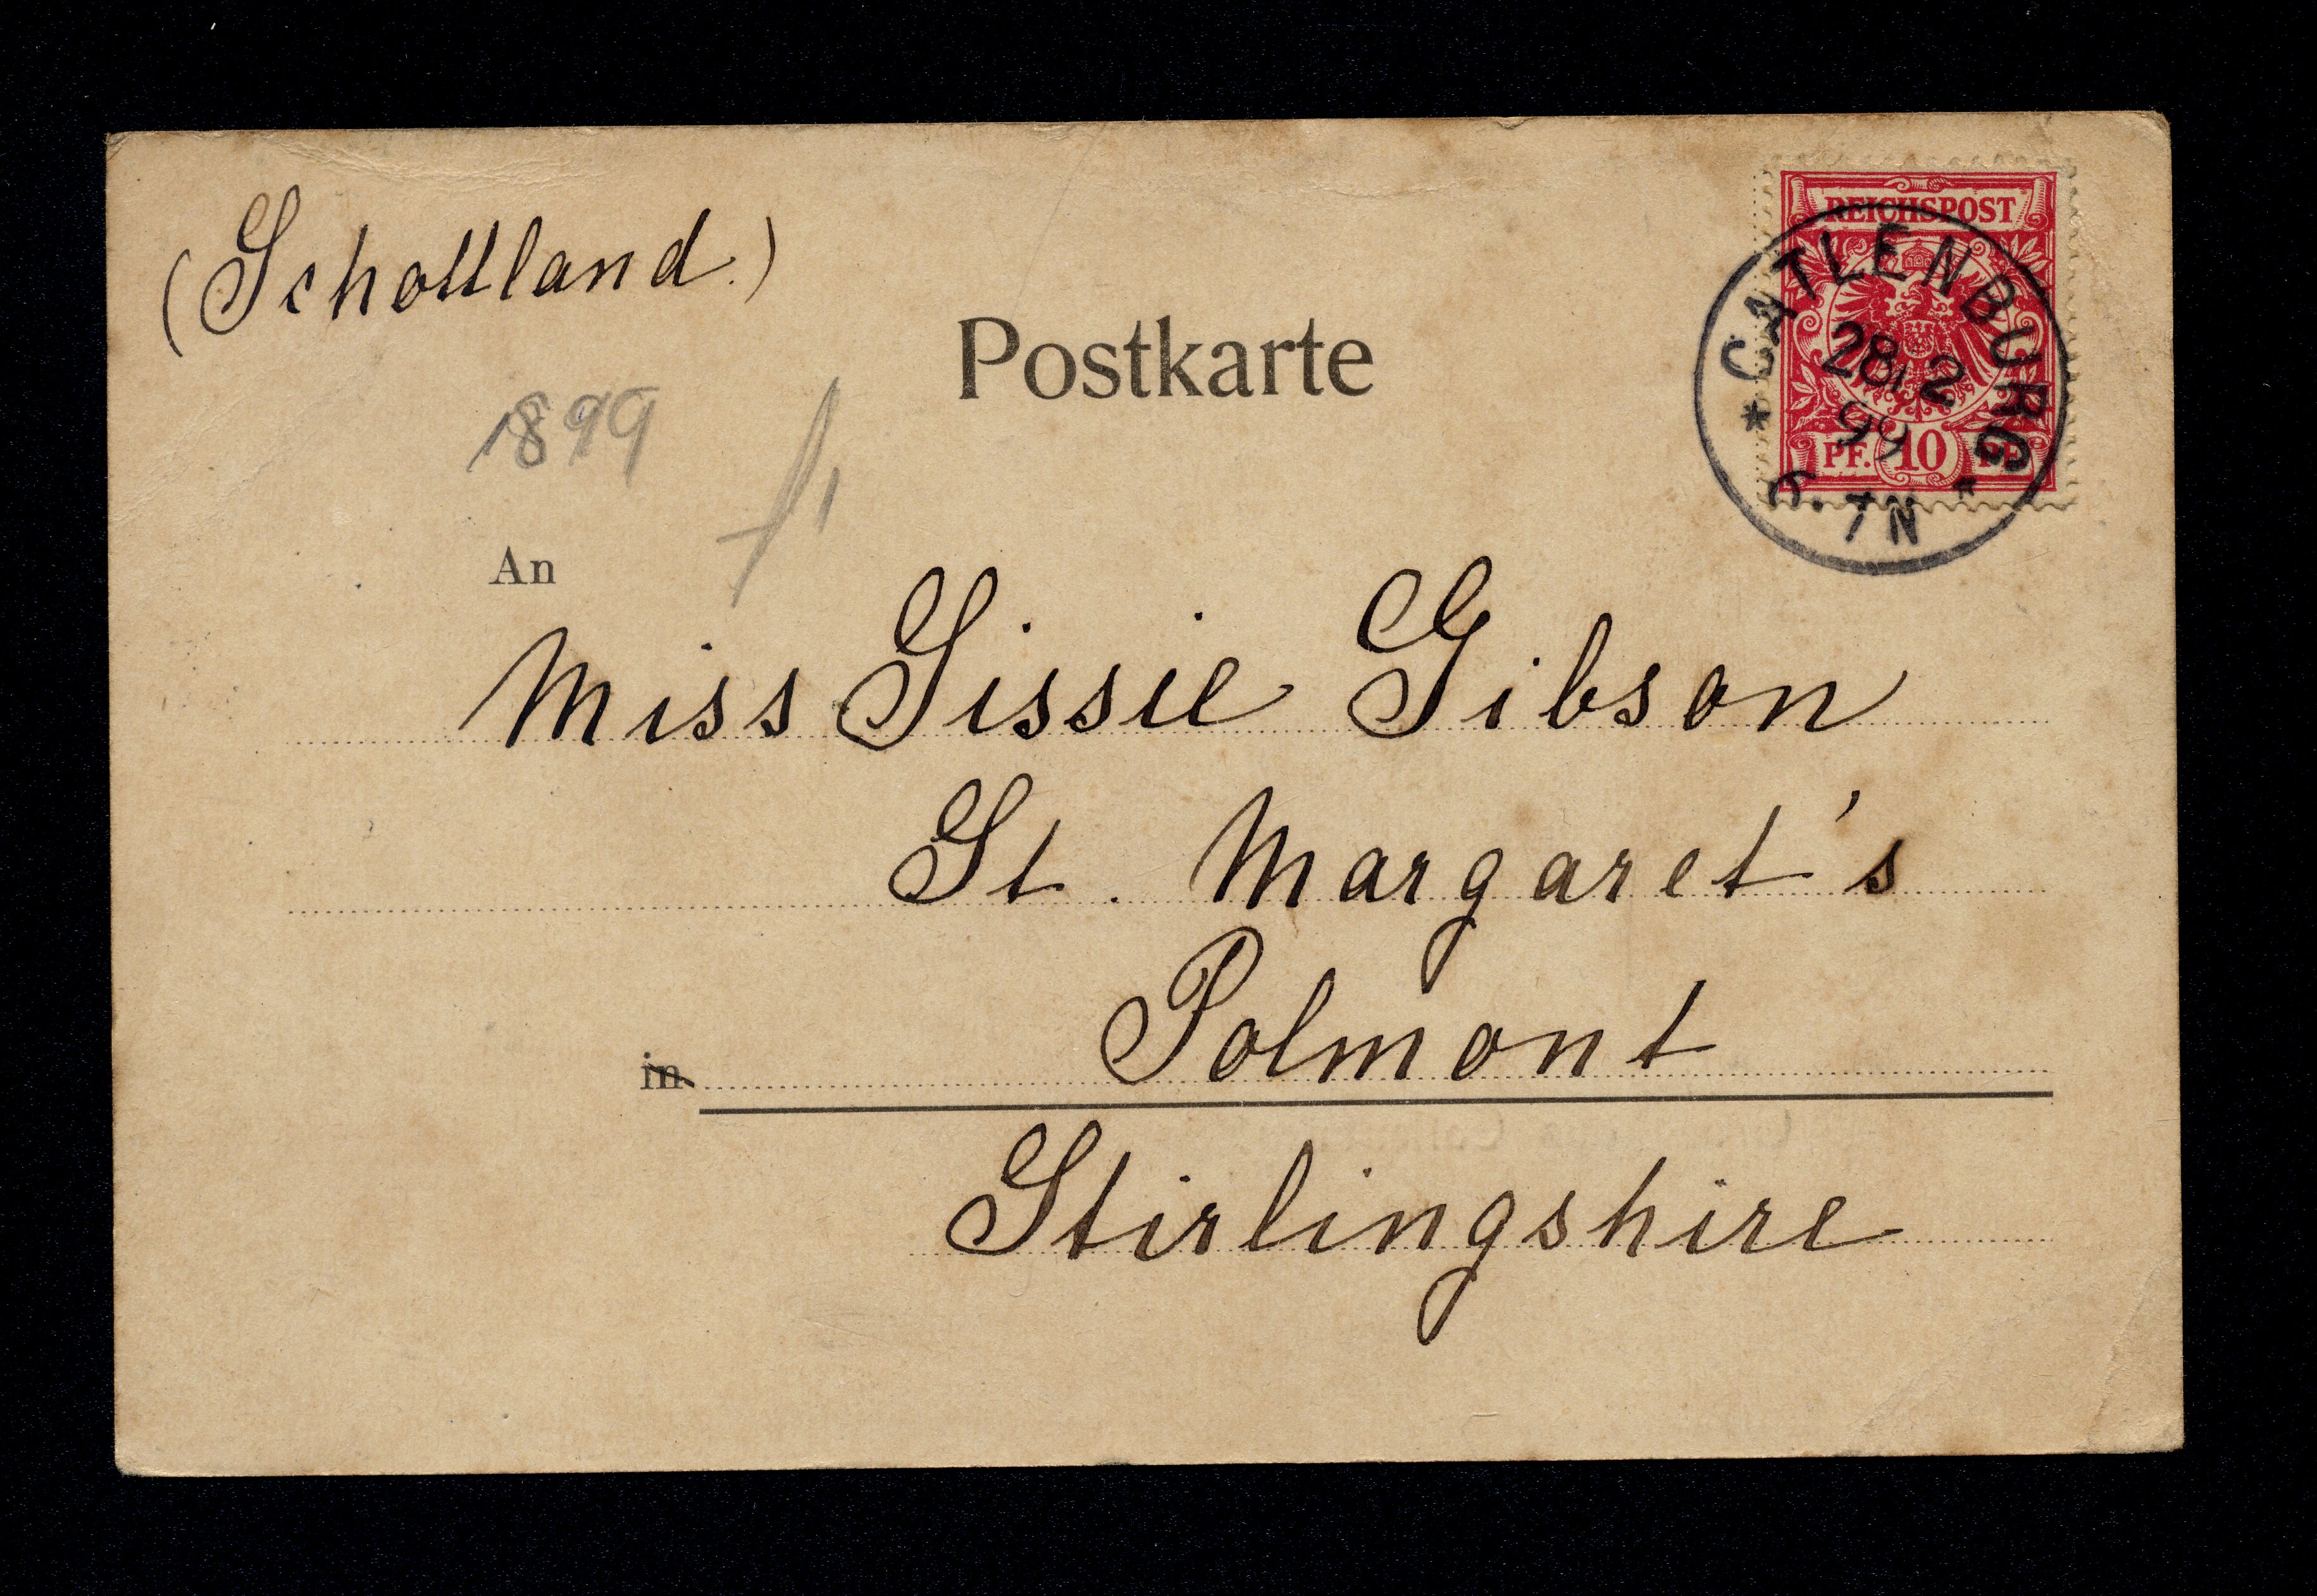 (Schottland.)
REICHSPOST
* CATLENBURG *
28 2
99
6. 7N
PF. 10 PF.
Postkarte
1899
An
Miss Sissie Gibson
St. Margaret's
in Polmont
Stirlingshire